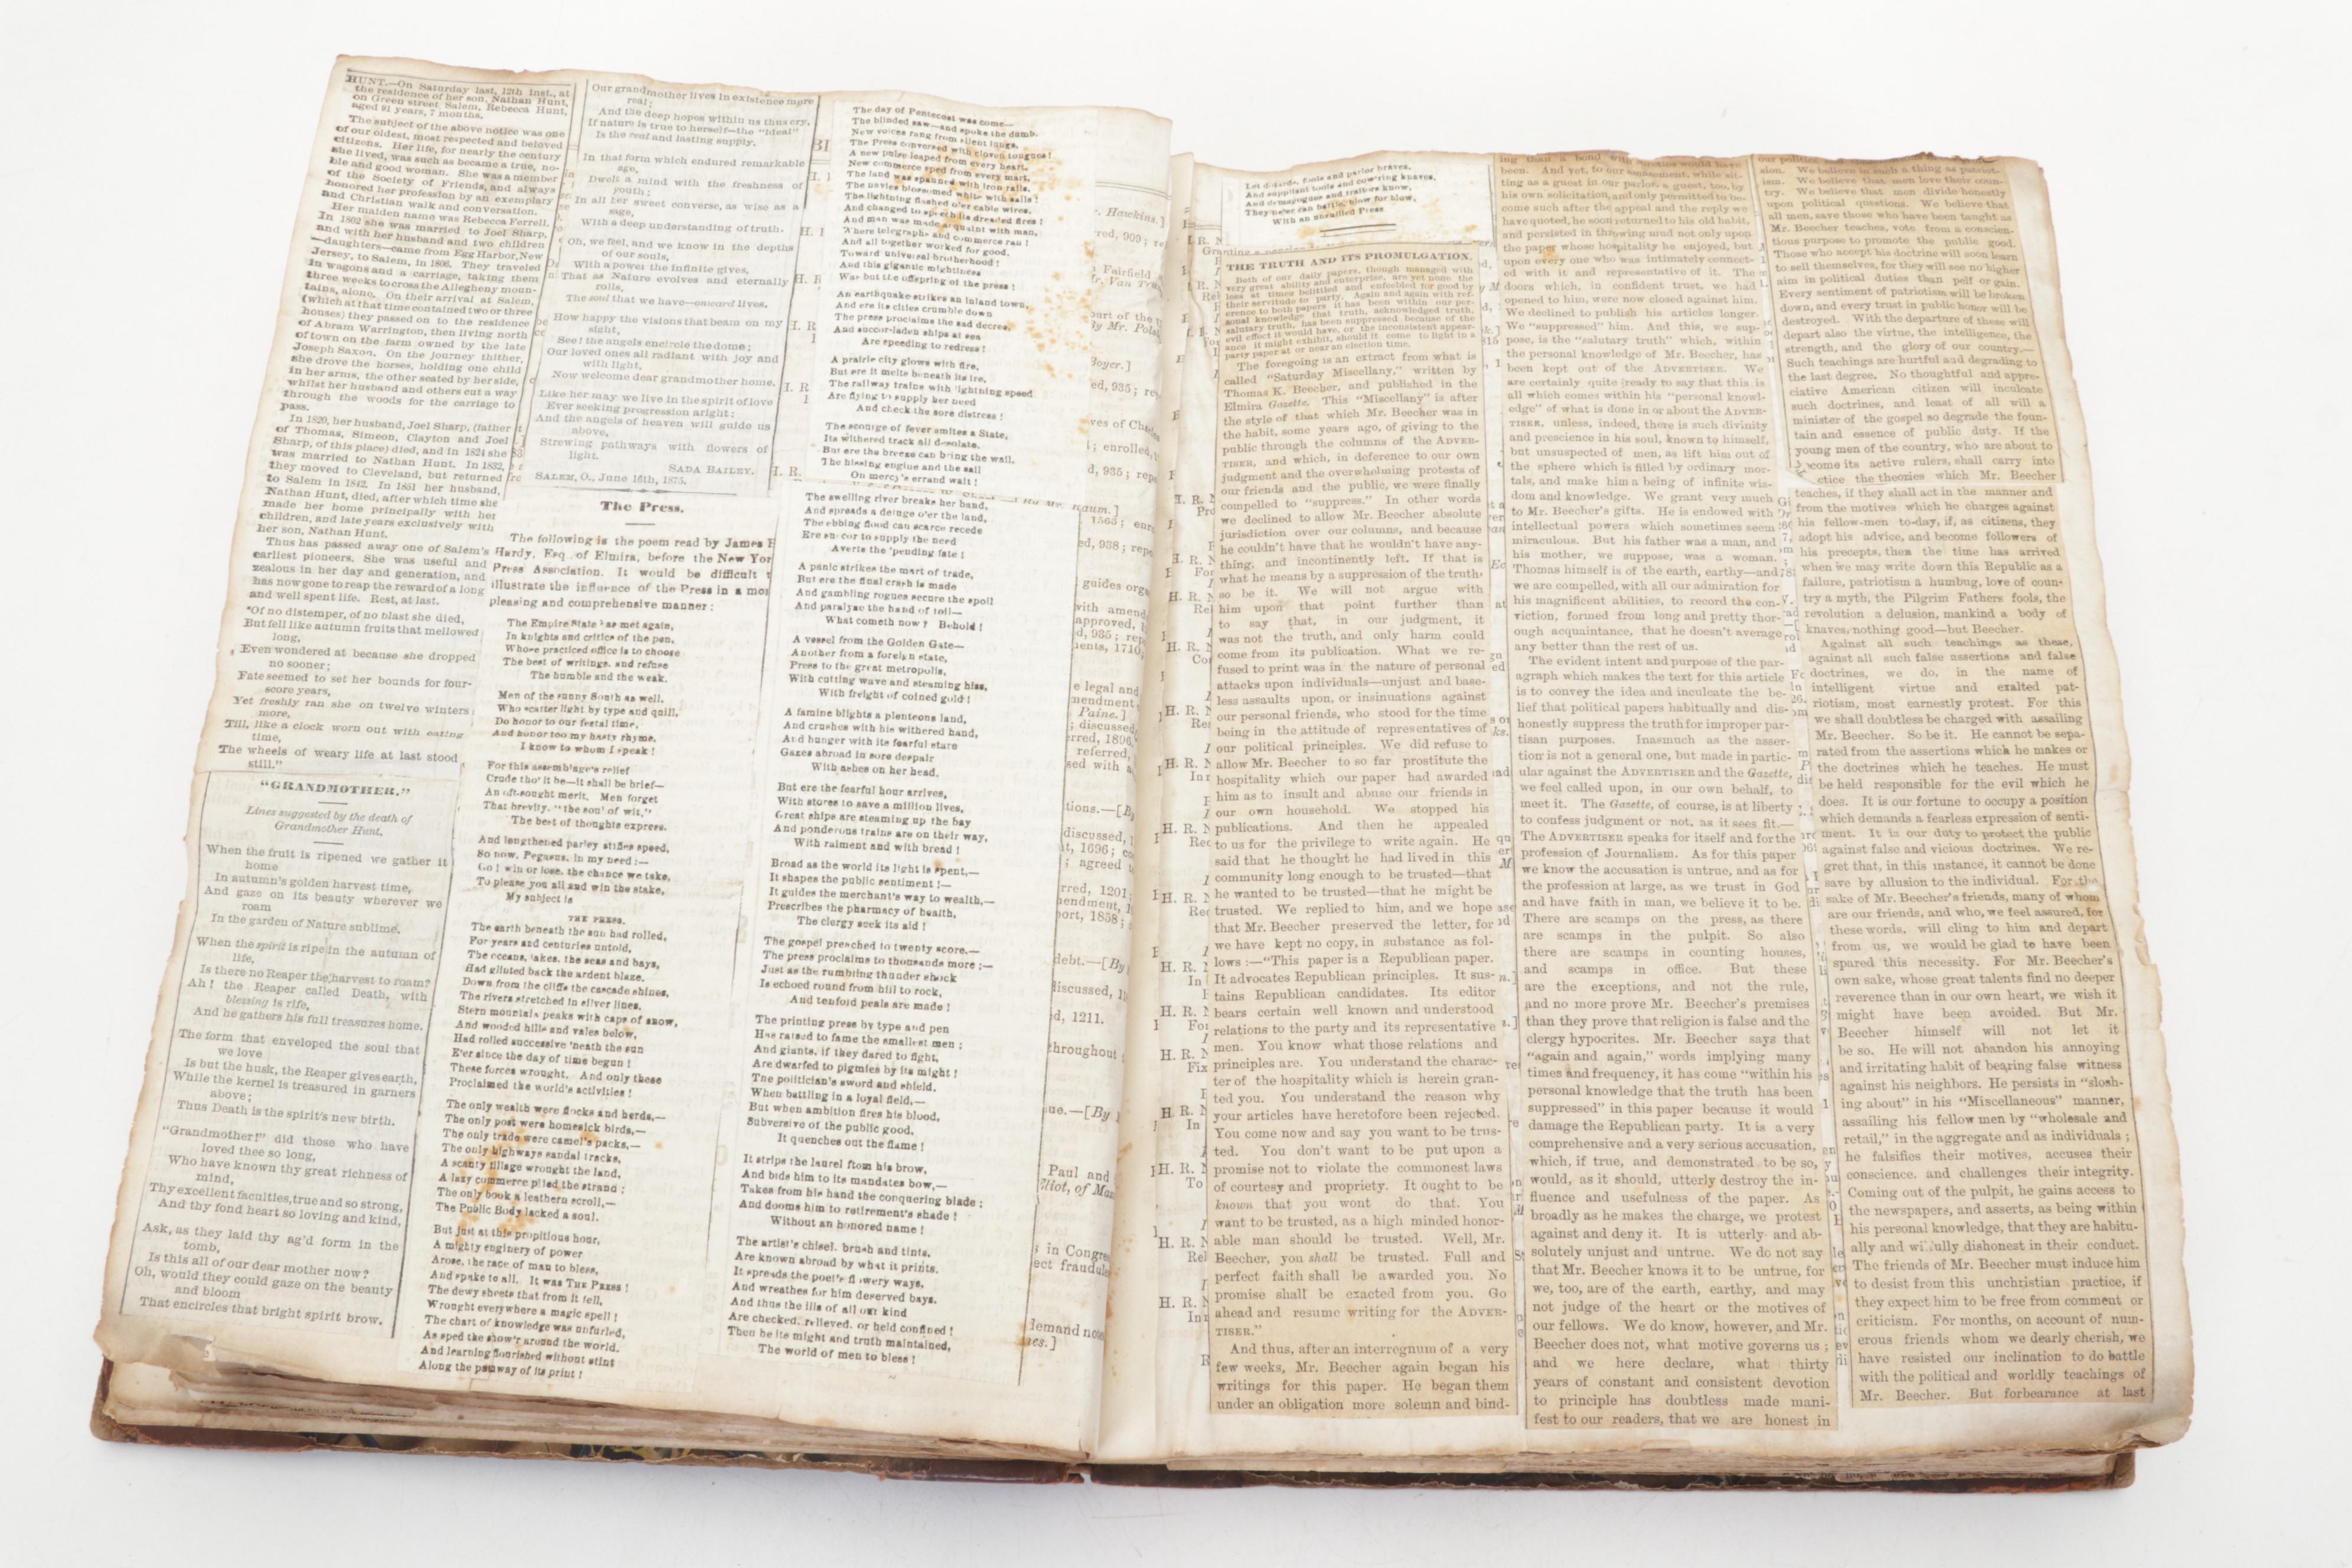 HUNT.—On Saturday last, 12th inst., at
the residence of her son, Nathan Hunt,
on Green street, Salem, Rebecca Hunt,
aged 91 years, 7 months.
The subject of the above notice was one
of our oldest, most respected and beloved
citizens. Her life, for nearly the century
she lived, was such as became a true, no-
ble and good woman. She was a member
of the Society of Friends, and always
honored her profession by an exemplary
and Christian walk and conversation.
Her maiden name was Rebecca Ferrell.
In 1802 she was married to Joel Sharp,
and with her husband and two children
—daughters—came from Egg Harbor, New
Jersey, to Salem, in 1806. They traveled
in wagons and a carriage, taking them
three weeks to cross the Allegheny moun-
tains, alone. On their arrival at Salem,
(which at that time contained two or three
houses) they passed on to the residence
of Abram Warrington, then living north
of town on the farm owned by the late
Joseph Saxon. On the journey thither,
she drove the horses, holding one child
in her arms, the other seated by her side,
whilst her husband and others cut a way
through the woods for the carriage to
pass.
In 1820, her husband, Joel Sharp, (father
of Thomas, Simeon, Clayton and Joel
Sharp, of this place) died, and in 1824 she
was married to Nathan Hunt. In 1832,
they moved to Cleveland, but returned
to Salem in 1842. In 1851 her husband,
Nathan Hunt, died, after which time she
made her home principally with her
children, and late years exclusively with
her son, Nathan Hunt.
Thus has passed away one of Salem's
earliest pioneers. She was useful and
zealous in her day and generation, and
has now gone to reap the reward of a long
and well spent life. Rest, at last.
"Of no distemper, of no blast she died,
But fell like autumn fruits that mellowed
long,
Even wondered at because she dropped
no sooner;
Fate seemed to set her bounds for four-
score years,
Yet freshly ran she on twelve winters
more,
Till, like a clock worn out with eating
time,
The wheels of weary life at last stood
still."
"GRANDMOTHER."
Lines suggested by the death of
Grandmother Hunt.
When the fruit is ripened we gather it
home
In autumn's golden harvest time,
And gaze on its beauty wherever we
roam
In the garden of Nature sublime.
When the spirit is ripe in the autumn of
life,
Is there no Reaper the harvest to roam?
Ah! the Reaper called Death, with
blessing is rife,
And he gathers his full treasures home.
The form that enveloped the soul that
we love
Is but the husk, the Reaper gives earth,
While the kernel is treasured in garners
above;
Thus Death is the spirit's new birth.
"Grandmother!" did those who have
loved thee so long,
Who have known thy great richness of
mind,
Thy excellent faculties, true and so strong,
And thy fond heart so loving and kind,
Ask, as they laid thy ag'd form in the
tomb,
Is this all of our dear mother now?
Oh, would they could gaze on the beauty
and bloom
That encircles that bright spirit brow.
Our grandmother lives in existence more
real;
And the deep hopes within us thus cry.
If nature is true to herself—the "ideal"
Is the real and lasting supply.
In that form which endured remarkable
age,
Dwelt a mind with the freshness of
youth;
In all her sweet converse, as wise as a
sage,
With a deep understanding of truth.
Oh, we feel, and we know in the depths
of our souls,
With a power the infinite gives,
That as Nature evolves and eternally
rolls,
The soul that we have—onward lives.
How happy the visions that beam on my
sight,
See! the angels encircle the dome;
Our loved ones all radiant with joy and
with light,
Now welcome dear grandmother home.
Like her may we live in the spirit of love
Ever seeking progression aright;
And the angels of heaven will guide us
above,
Strewing pathways with flowers of
light.
SADA BAILEY.
SALEM, O., June 16th, 1875.
The Press.
The following is the poem read by James
Hardy, Esq. of Elmira, before the New Yor
Press Association. It would be difficult
illustrate the influence of the Press in a mo
pleasing and comprehensive manner:
The Empire State has met again,
In knights and critics of the pen,
Whose practiced office is to choose
The best of writings, and refuse
The humble and the weak.
Men of the sunny South as well,
Who scatter light by type and quill,
Do honor to our festal time,
And honor too my hasty rhyme.
I know to whom I speak!
For this assemblage's relief
Crude tho' it be—it shall be brief—
An oft-sought merit. Men forget
That brevity, "the soul of wit,"
The best of thoughts express.
And lengthened parley stifles speed,
So now, Pegasus, in my need:—
Go! win or lose, the chance we take,
To please you all and win the stake,
My subject is
THE PRESS.
The earth beneath the sun had rolled,
For years and centuries untold,
The oceans, lakes, the seas and bays,
Had glinted back the ardent blaze.
Down from the cliffs the cascade shines,
The rivers stretched in silver lines,
Stern mountain peaks with caps of snow,
And wooded hills and vales below,
Had rolled successive 'neath the sun
E'er since the day of time begun!
These forces wrought. And only these
Proclaimed the world's activities!
The only wealth were flocks and herds,—
The only post were homesick birds,—
The only trade were camel's packs,—
The only highways sandal tracks,
A scanty tillage wrought the land,
A lazy commerce plied the strand;
The only book a leathern scroll,—
The Public Body lacked a soul.
But just at this propitious hour,
A mighty enginery of power
Arose, the race of man to bless,
And spake to all. It was THE PRESS!
The dewy sheets that from it fell,
Wrought everywhere a magic spell!
The chart of knowledge was unfurled,
As sped the show'r around the world.
And learning flourished without stint
Along the pathway of its print!
The day of Pentecost was come—
The blinded saw—and spoke the dumb.
New voices rang from silent lungs,
The Press conversed with cloven tongues!
A new pulse leaped from every heart,
New commerce sped from every mart,
The land was spanned with iron rails,
The navies blossomed white with sails!
The lightning flashed o'er cable wires,
And changed to speech its dreaded fires!
And man was made acquaint with man,
Where telegraphs and commerce ran!
And all together worked for good,
Toward universal brotherhood!
And this gigantic mightiness
Was but the offspring of the press!
An earthquake strikes an inland town,
And ere its cities crumble down
The press proclaims the sad decree,
And succor-laden ships at sea
Are speeding to redress!
A prairie city glows with fire,
But ere it melts beneath its ire,
The railway trains with lightning speed
Are flying to supply her need
And check the sore distress!
The scourge of fever smites a State,
Its withered track all desolate.
But ere the breeze can bring the wail,
The hissing engine and the sail
On mercy's errand wait!
The swelling river breaks her band,
And spreads a deluge o'er the land,
The ebbing flood can scarce recede
Ere succor to supply the need
Averts the 'pending fate!
A panic strikes the mart of trade,
But ere the final crash is made
And gambling rogues secure the spoil
And paralyze the hand of toil—
What cometh now? Behold!
A vessel from the Golden Gate—
Another from a foreign state,
Press to the great metropolis,
With cutting wave and steaming hiss,
With freight of coined gold!
A famine blights a plenteous land,
And crushes with his withered hand,
And hunger with its fearful stare
Gazes abroad in sore despair
With ashes on her head.
But ere the fearful hour arrives,
With stores to save a million lives,
Great ships are steaming up the bay
And ponderous trains are on their way,
With raiment and with bread!
Broad as the world its light is spent,—
It shapes the public sentiment!—
It guides the merchant's way to wealth,—
Prescribes the pharmacy of health,
The clergy seek its aid!
The gospel preached to twenty score,—
The press proclaims to thousands more;—
Just as the rumbling thunder shock
Is echoed round from hill to rock,
And tenfold peals are made!
The printing press by type and pen
Has raised to fame the smallest men;
And giants, if they dared to fight,
Are dwarfed to pigmies by its might!
The politician's sword and shield,
When battling in a loyal field,—
But when ambition fires his blood,
Subversive of the public good,
It quenches out the flame!
It strips the laurel from his brow,
And bids him to its mandates bow,—
Takes from his hand the conquering blade;
And dooms him to retirement's shade!
Without an honored name!
The artist's chisel, brush and tints,
Are known abroad by what it prints.
It spreads the poet's flowery ways,
And wreathes for him deserved bays.
And thus the ills of all our kind
Are checked, relieved, or held confined!
Then be its might and truth maintained,
The world of men to bless!
Let dotards, fools and parlor braves,
And suppliant tools and cow'ring knaves,
And demagogues and traitors know,
They never can battle, blow for blow,
With an unsullied Press.
THE TRUTH AND ITS PROMULGATION.
Both of our daily papers, though managed with
very great ability and enterprise, are yet none the
less at times belittled and enfeebled for good by
their servitude to party. Again and again with ref-
erence to both papers it has been within our per-
sonal knowledge that truth, acknowledged truth,
salutary truth, has been suppressed because of the
evil effect it would have, or the inconsistent appear-
ance it might exhibit, should it come to light in a
party paper at or near an election time.
The foregoing is an extract from what is
called "Saturday Miscellany," written by
Thomas K. Beecher, and published in the
Elmira Gazette. This "Miscellany" is after
the style of that which Mr. Beecher was in
the habit, some years ago, of giving to the
public through the columns of the ADVER-
TISER, and which, in deference to our own
judgment and the overwhelming protests of
our friends and the public, we were finally
compelled to "suppress." In other words
we declined to allow Mr. Beecher absolute
jurisdiction over our columns, and because
he couldn't have that he wouldn't have any-
thing, and incontinently left. If that is
what he means by a suppression of the truth,
so be it. We will not argue with
him upon that point further than
to say that, in our judgment, it
was not the truth, and only harm could
come from its publication. What we re-
fused to print was in the nature of personal
attacks upon individuals—unjust and base-
less assaults upon, or insinuations against
our personal friends, who stood for the time
being in the attitude of representatives of
our political principles. We did refuse to
allow Mr. Beecher to so far prostitute the
hospitality which our paper had awarded
him as to insult and abuse our friends in
our own household. We stopped his
publications. And then he appealed
to us for the privilege to write again. He
said that he thought he had lived in this
community long enough to be trusted—that
he wanted to be trusted—that he might be
trusted. We replied to him, and we hope
that Mr. Beecher preserved the letter, for
we have kept no copy, in substance as fol-
lows:—"This paper is a Republican paper.
It advocates Republican principles. It sus-
tains Republican candidates. Its editor
bears certain well known and understood
relations to the party and its representative
men. You know what those relations and
principles are. You understand the charac-
ter of the hospitality which is herein gran-
ted you. You understand the reason why
your articles have heretofore been rejected.
You come now and say you want to be trus-
ted. You don't want to be put upon a
promise not to violate the commonest laws
of courtesy and propriety. It ought to be
known that you wont do that. You
want to be trusted, as a high minded honor-
able man should be trusted. Well, Mr.
Beecher, you shall be trusted. Full and
perfect faith shall be awarded you. No
promise shall be exacted from you. Go
ahead and resume writing for the ADVER-
TISER."
And thus, after an interregnum of a very
few weeks, Mr. Beecher again began his
writings for this paper. He began them
under an obligation more solemn and bind-
ing than a bond with sureties would have
been. And yet, to our amazement, while sit-
ting as a guest in our parlor, a guest, too, by
his own solicitation, and only permitted to be-
come such after the appeal and the reply we
have quoted, he soon returned to his old habit,
and persisted in throwing mud not only upon
the paper whose hospitality he enjoyed, but
upon every one who was intimately connect-
ed with it and representative of it. The
doors which, in confident trust, we had
opened to him, were now closed against him.
We declined to publish his articles longer.
We "suppressed" him. And this, we sup-
pose, is the "salutary truth" which, within
the personal knowledge of Mr. Beecher, has
been kept out of the ADVERTISER. We
are certainly quite ready to say that this is
all which comes within his "personal knowl-
edge" of what is done in or about the ADVER-
TISER, unless, indeed, there is such divinity
and prescience in his soul, known to himself,
but unsuspected of men, as lift him out of
the sphere which is filled by ordinary mor-
tals, and make him a being of infinite wis-
dom and knowledge. We grant very much
to Mr. Beecher's gifts. He is endowed with
intellectual powers which sometimes seem
miraculous. But his father was a man, and
his mother, we suppose, was a woman.
Thomas himself is of the earth, earthy—and
we are compelled, with all our admiration for
his magnificent abilities, to record the con-
viction, formed from long and pretty thor-
ough acquaintance, that he doesn't average
any better than the rest of us.
The evident intent and purpose of the par-
agraph which makes the text for this article
is to convey the idea and inculcate the be-
lief that political papers habitually and dis-
honestly suppress the truth for improper par-
tisan purposes. Inasmuch as the asser-
tion is not a general one, but made in partic-
ular against the ADVERTISER and the Gazette,
we feel called upon, in our own behalf, to
meet it. The Gazette, of course, is at liberty
to confess judgment or not, as it sees fit.—
The ADVERTISER speaks for itself and for the
profession of Journalism. As for this paper
we know the accusation is untrue, and as for
the profession at large, as we trust in God
and have faith in man, we believe it to be.
There are scamps on the press, as there
are scamps in the pulpit. So also
there are scamps in counting houses,
and scamps in office. But these
are the exceptions, and not the rule,
and no more prove Mr. Beecher's premises
than they prove that religion is false and the
clergy hypocrites. Mr. Beecher says that
"again and again," words implying many
times and frequency, it has come "within his
personal knowledge that the truth has been
suppressed" in this paper because it would
damage the Republican party. It is a very
comprehensive and a very serious accusation,
which, if true, and demonstrated to be so,
would, as it should, utterly destroy the in-
fluence and usefulness of the paper. As
broadly as he makes the charge, we protest
against and deny it. It is utterly and ab-
solutely unjust and untrue. We do not say
that Mr. Beecher knows it to be untrue, for
we, too, are of the earth, earthy, and may
not judge of the heart or the motives of
our fellows. We do know, however, and Mr.
Beecher does not, what motive governs us;
and we here declare, what thirty
years of constant and consistent devotion
to principle has doubtless made mani-
fest to our readers, that we are honest in
our politics
sion. We believe in such a thing as patriot-
ism. We believe that men love their coun-
try. We believe that men divide honestly
upon political questions. We believe that
all men, save those who have been taught as
Mr. Beecher teaches, vote from a conscien-
tious purpose to promote the public good.
Those who accept his doctrine will soon learn
to sell themselves, for they will see no higher
aim in political duties than pelf or gain.
Every sentiment of patriotism will be broken
down, and every trust in public honor will be
destroyed. With the departure of these will
depart also the virtue, the intelligence, the
strength, and the glory of our country.—
Such teachings are hurtful and degrading to
the last degree. No thoughtful and appre-
ciative American citizen will inculcate
such doctrines, and least of all will a
minister of the gospel so degrade the foun-
tain and essence of public duty. If the
young men of the country, who are about to
come its active rulers, shall carry into
ctice the theories which Mr. Beecher
teaches, if they shall act in the manner and
from the motives which he charges against
his fellow-men to-day, if, as citizens, they
adopt his advice, and become followers of
his precepts, then the time has arrived
when we may write down this Republic as a
failure, patriotism a humbug, love of coun-
try a myth, the Pilgrim Fathers fools, the
revolution a delusion, mankind a body of
knaves, nothing good—but Beecher.
Against all such teachings as these,
against all such false assertions and false
doctrines, we do, in the name of
intelligent virtue and exalted pat-
riotism, most earnestly protest. For this
we shall doubtless be charged with assailing
Mr. Beecher. So be it. He cannot be sepa-
rated from the assertions which he makes or
the doctrines which he teaches. He must
be held responsible for the evil which he
does. It is our fortune to occupy a position
which demands a fearless expression of senti-
ment. It is our duty to protect the public
against false and vicious doctrines. We re-
gret that, in this instance, it cannot be done
save by allusion to the individual. For the
sake of Mr. Beecher's friends, many of whom
are our friends, and who, we feel assured, for
these words, will cling to him and depart
from us, we would be glad to have been
spared this necessity. For Mr. Beecher's
own sake, whose great talents find no deeper
reverence than in our own heart, we wish it
might have been avoided. But Mr.
Beecher himself will not let it
be so. He will not abandon his annoying
and irritating habit of bearing false witness
against his neighbors. He persists in "slosh-
ing about" in his "Miscellaneous" manner,
assailing his fellow men by "wholesale and
retail," in the aggregate and as individuals;
he falsifies their motives, accuses their
conscience, and challenges their integrity.
Coming out of the pulpit, he gains access to
the newspapers, and asserts, as being within
his personal knowledge, that they are habitu-
ally and wilfully dishonest in their conduct.
The friends of Mr. Beecher must induce him
to desist from this unchristian practice, if
they expect him to be free from comment or
criticism. For months, on account of num-
erous friends whom we dearly cherish, we
have resisted our inclination to do battle
with the political and worldly teachings of
Mr. Beecher. But forbearance at last